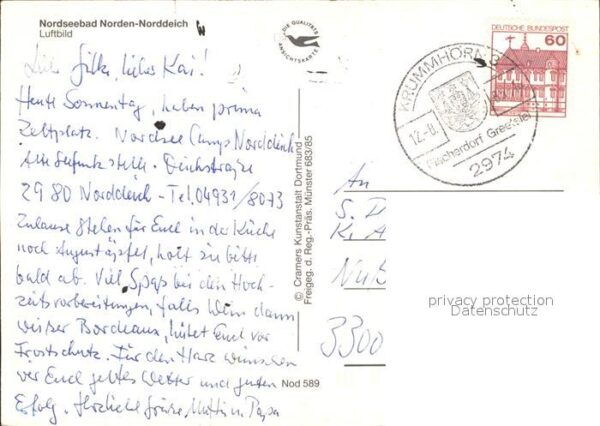 Nordseebad Norden-Norddeich
Luftbild
DIE QUALITÄTS
ANSICHTSKARTE
DEUTSCHE BUNDESPOST
60
KRUMMHÖRN
12.-8.
Fischerdorf Greetsiel
2974
Liebe Silke, lieber Kai!
Heute Sonnentag, haben prima
Zeltplatz. Nordsee Camp Norddeich
Alte Seefunkstelle. Deichstraße
2980 Norddeich - Tel. 04931/8073
Zuhause stehen für Euch in der Küche
noch Augustäpfel, holt sie bitte
bald ab. Viel Spaß bei den Hoch-
zeitsvorbereitungen, falls Wein dann
weißer Bordeaux, hütet Euch vor
Frostschutz. Für den Harz wünschen
wir Euch gutes Wetter und guten
Erfolg. Herzliche Grüße, Mutti u. Papa
© Cramers Kunstanstalt Dortmund
Freigeg. d. Reg.-Präs. Münster 683/85
Nod 589
An
S. D
K. A
Nuß
3300
privacy protection
Datenschutz